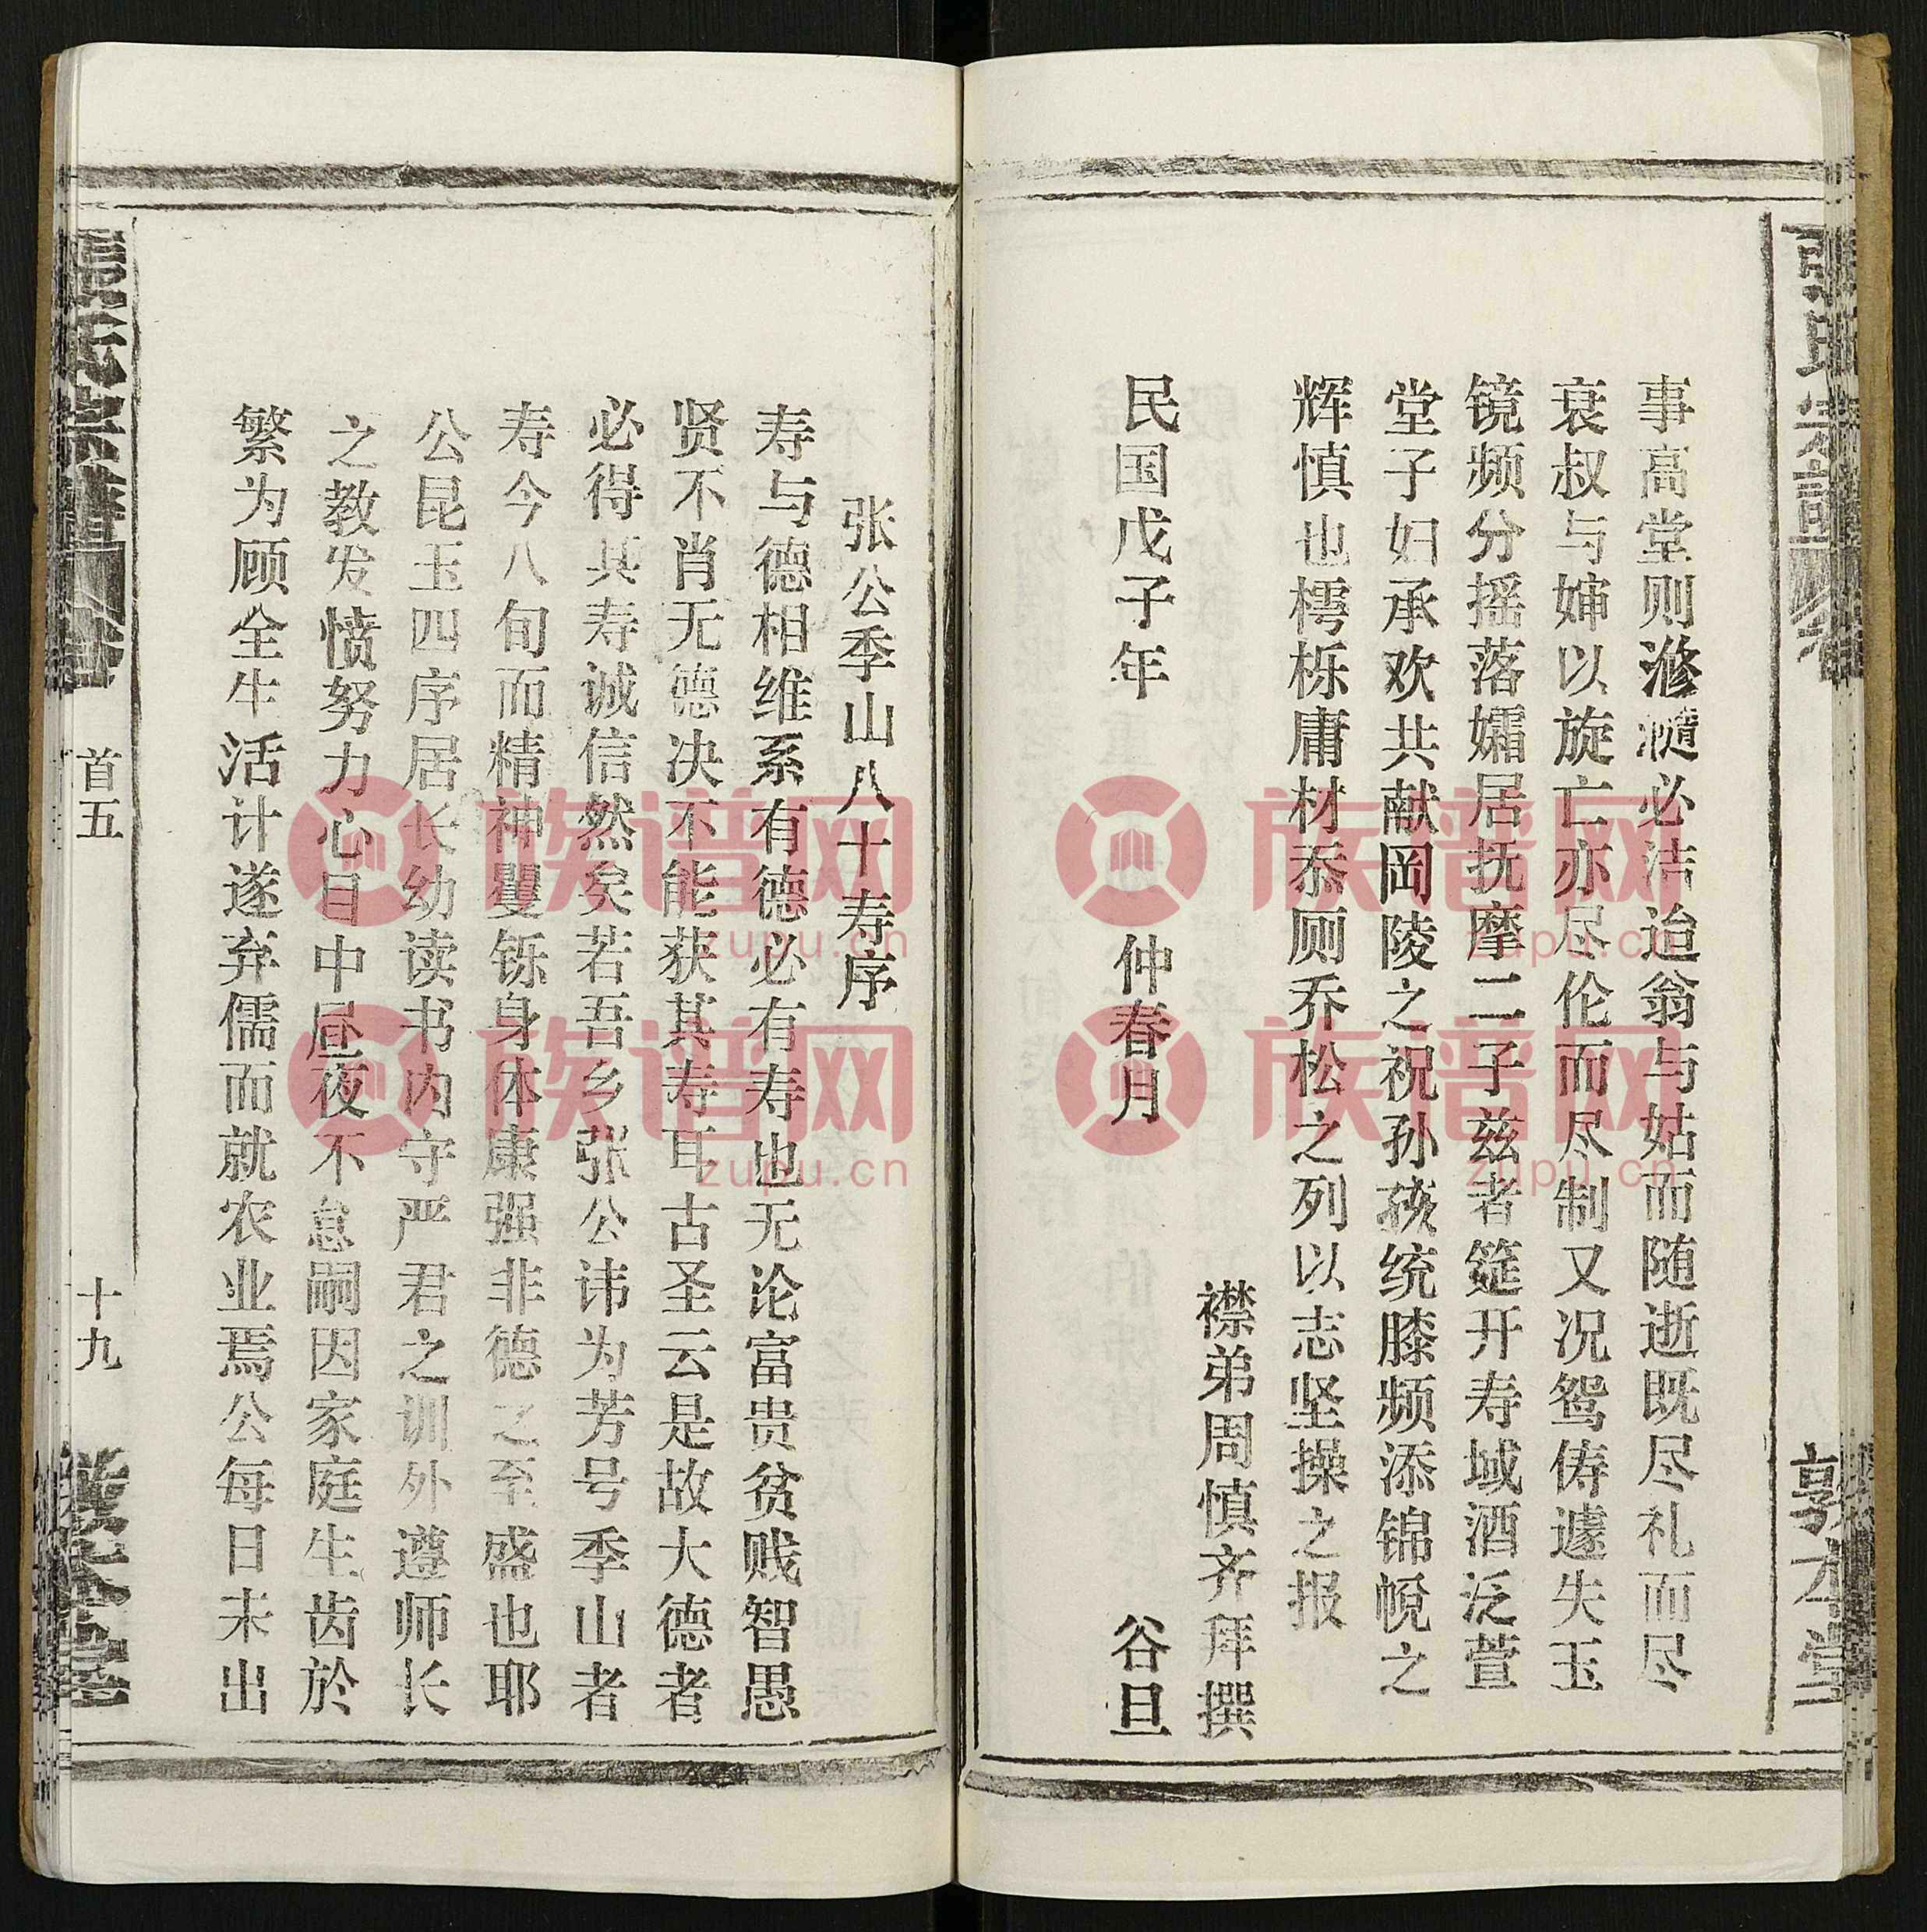 事高堂则滫瀡必洁迨翁与姑而随逝既尽礼而尽
衰叔与婶以旋亡亦尽伦而尽制又况鸳俦遽失玉
镜频分摇落孀居抚摩二子兹者筵开寿域酒泛萱
堂子妇承欢共献冈陵之祝孙孩统膝频添锦帨之
辉慎也樗栎庸材忝厕乔松之列以志坚操之报
襟弟周慎齐拜撰
民国戊子年 仲春月 谷旦
张公季山八十寿序
寿与德相维系有德必有寿也无论富贵贫贱智愚
贤不肖无德决不能获其寿耳古圣云是故大德者
必得其寿诚信然矣若吾乡张公讳为芳号季山者
寿今八旬而精神矍铄身体康强非德之至盛也耶
公昆玉四序居长幼读书内守严君之训外遵师长
之教发愤努力心日中昼夜不怠嗣因家庭生齿於
繁为顾全生活计遂弃儒而就农业焉公每日未出
张氏宗谱
敦本堂
首五
十九
族谱网
zupu.cn
族谱网
zupu.cn
族谱网
zupu.cn
族谱网
zupu.cn